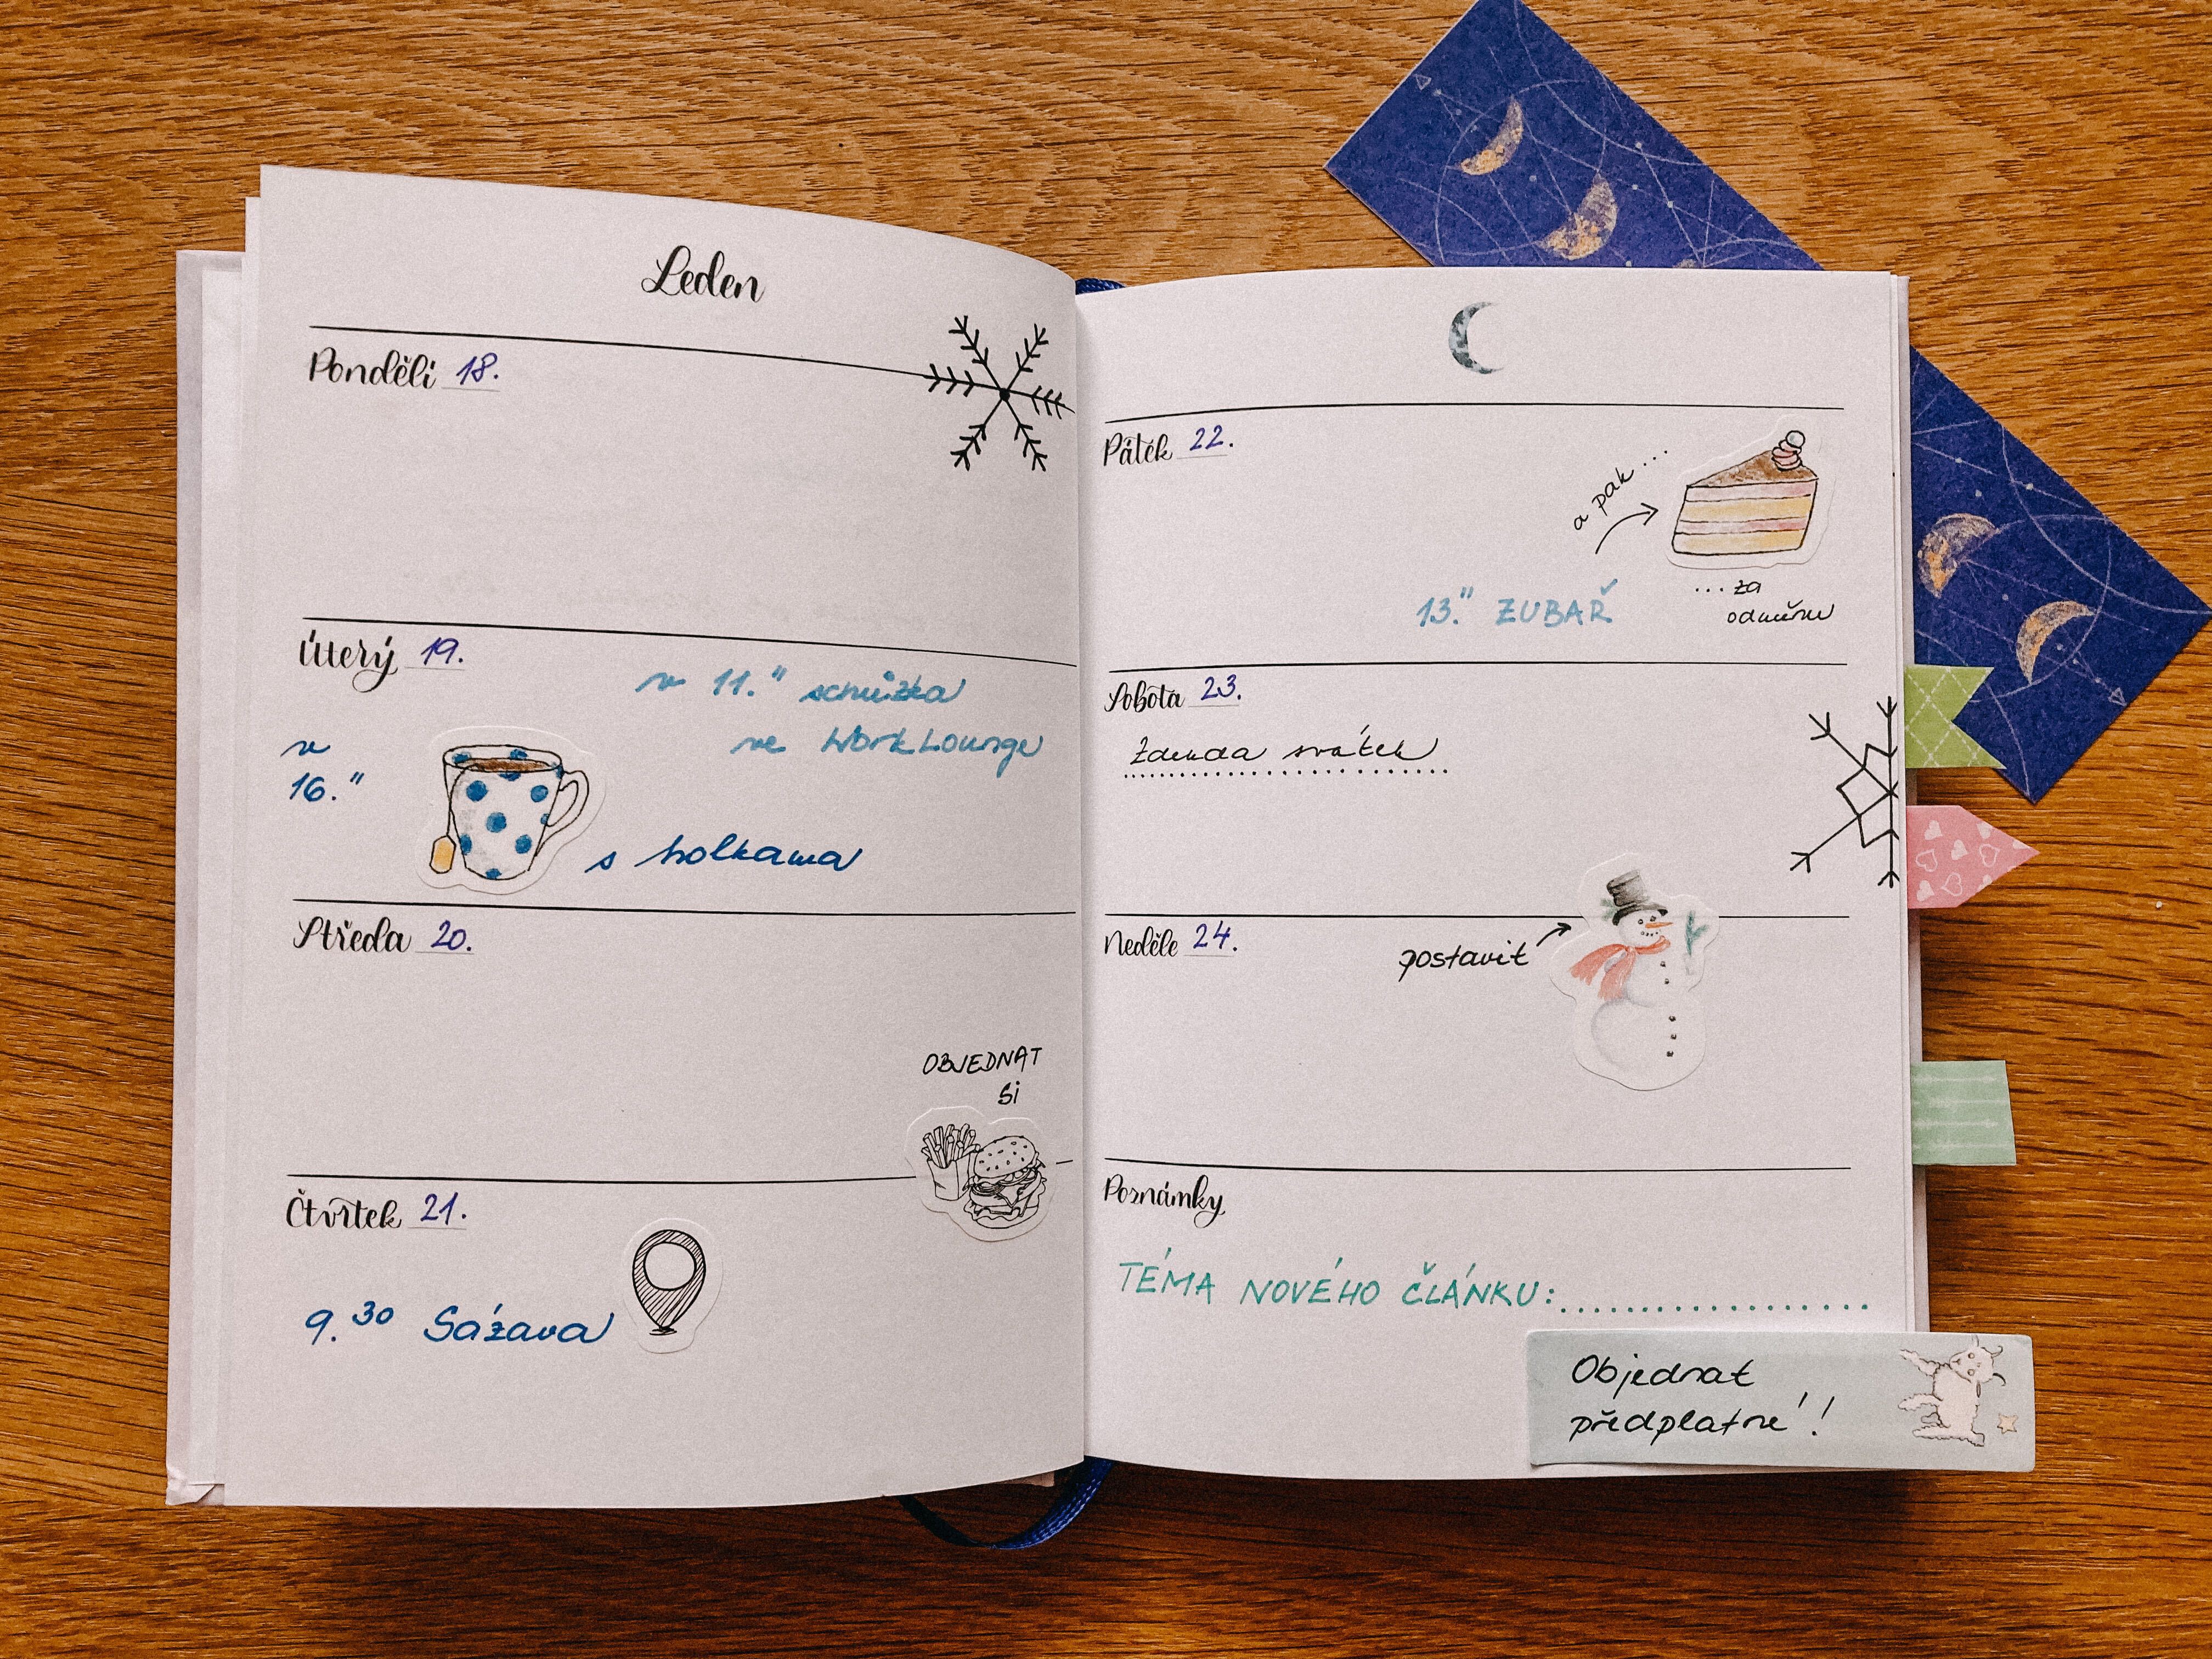 Leden
Pondělí 18.
Úterý 19.
v 11.00 schůzka
ve WorkLounge
v
16.00
s holkama
Středa 20.
OBJEDNAT
SI
Čtvrtek 21.
9.30 Sázava
Pátek 22.
a pak ...
... za
odměnu
13.00 ZUBAŘ
Sobota 23.
Zdenda svátek
Neděle 24.
postavit
Poznámky
TÉMA NOVÉHO ČLÁNKU:....................
Objednat
předplatné!